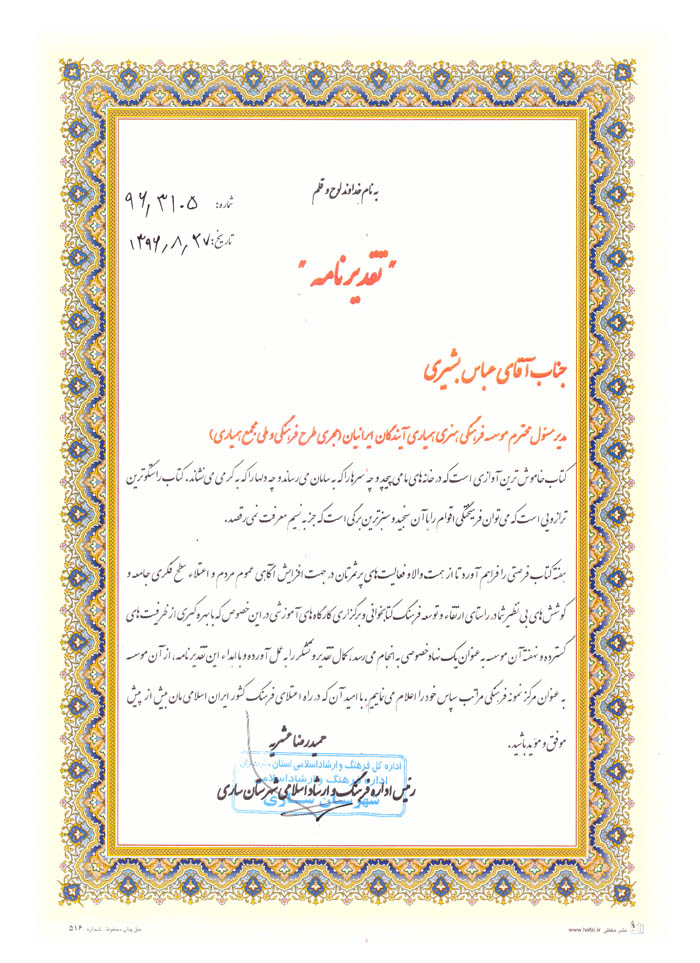 به نام خداوند لوح و قلم
شماره: ۹۶٫۳۱۰۵
تاریخ: ۱۳۹۶٫۸٫۲۷
"تقدیرنامه"
جناب آقای عباس بشیری
مدیر مسئول محترم موسسه فرهنگی هنری همیاری آیندگان ایرانیان (مجری طرح فرهنگی و ملی مجمع همیاری)
کتاب خاموش ترین آوازی است که در خانه های ما می پیچد و چه سرها را که به سامان می رساند و چه دلها را که به گرمی می نشاند. کتاب راستگوترین
ترازویی است که می توان فرهیختگی اقوام را با آن سنجید و سبزترین برگی است که جز به نسیم معرفت نمی رقصد.
هفته کتاب فرصتی را فراهم آورد تا از همت والا و فعالیت های پرثمرتان در جهت افزایش آگاهی عموم مردم و اعتلاء سطح فکری جامعه و
کوشش های بی نظیر شما در راستای ارتقاء و توسعه فرهنگ کتابخوانی و برگزاری کارگاه های آموزشی در این خصوص که با بهره گیری از ظرفیت های
گسترده و نهفته آن موسسه به عنوان یک نهاد خصوصی به انجام می رسد، کمال تقدیر و تشکر را به عمل آورده و با اهداء این تقدیرنامه، از آن موسسه
به عنوان مرکز نمونه فرهنگی مراتب سپاس خود را اعلام می نماییم. با امید آن که در راه اعتلای فرهنگ کشور ایران اسلامی مان بیش از پیش
موفق و موید باشید.
حمیدرضا عشریه
اداره کل فرهنگ و ارشاد اسلامی استان مازندران
اداره فرهنگ و ارشاد اسلامی
شهرستان ساری
رئیس اداره فرهنگ و ارشاد اسلامی شهرستان ساری
نشر حافظی www.hafzi.ir
حق چاپ محفوظ. شماره: ۵۱۶